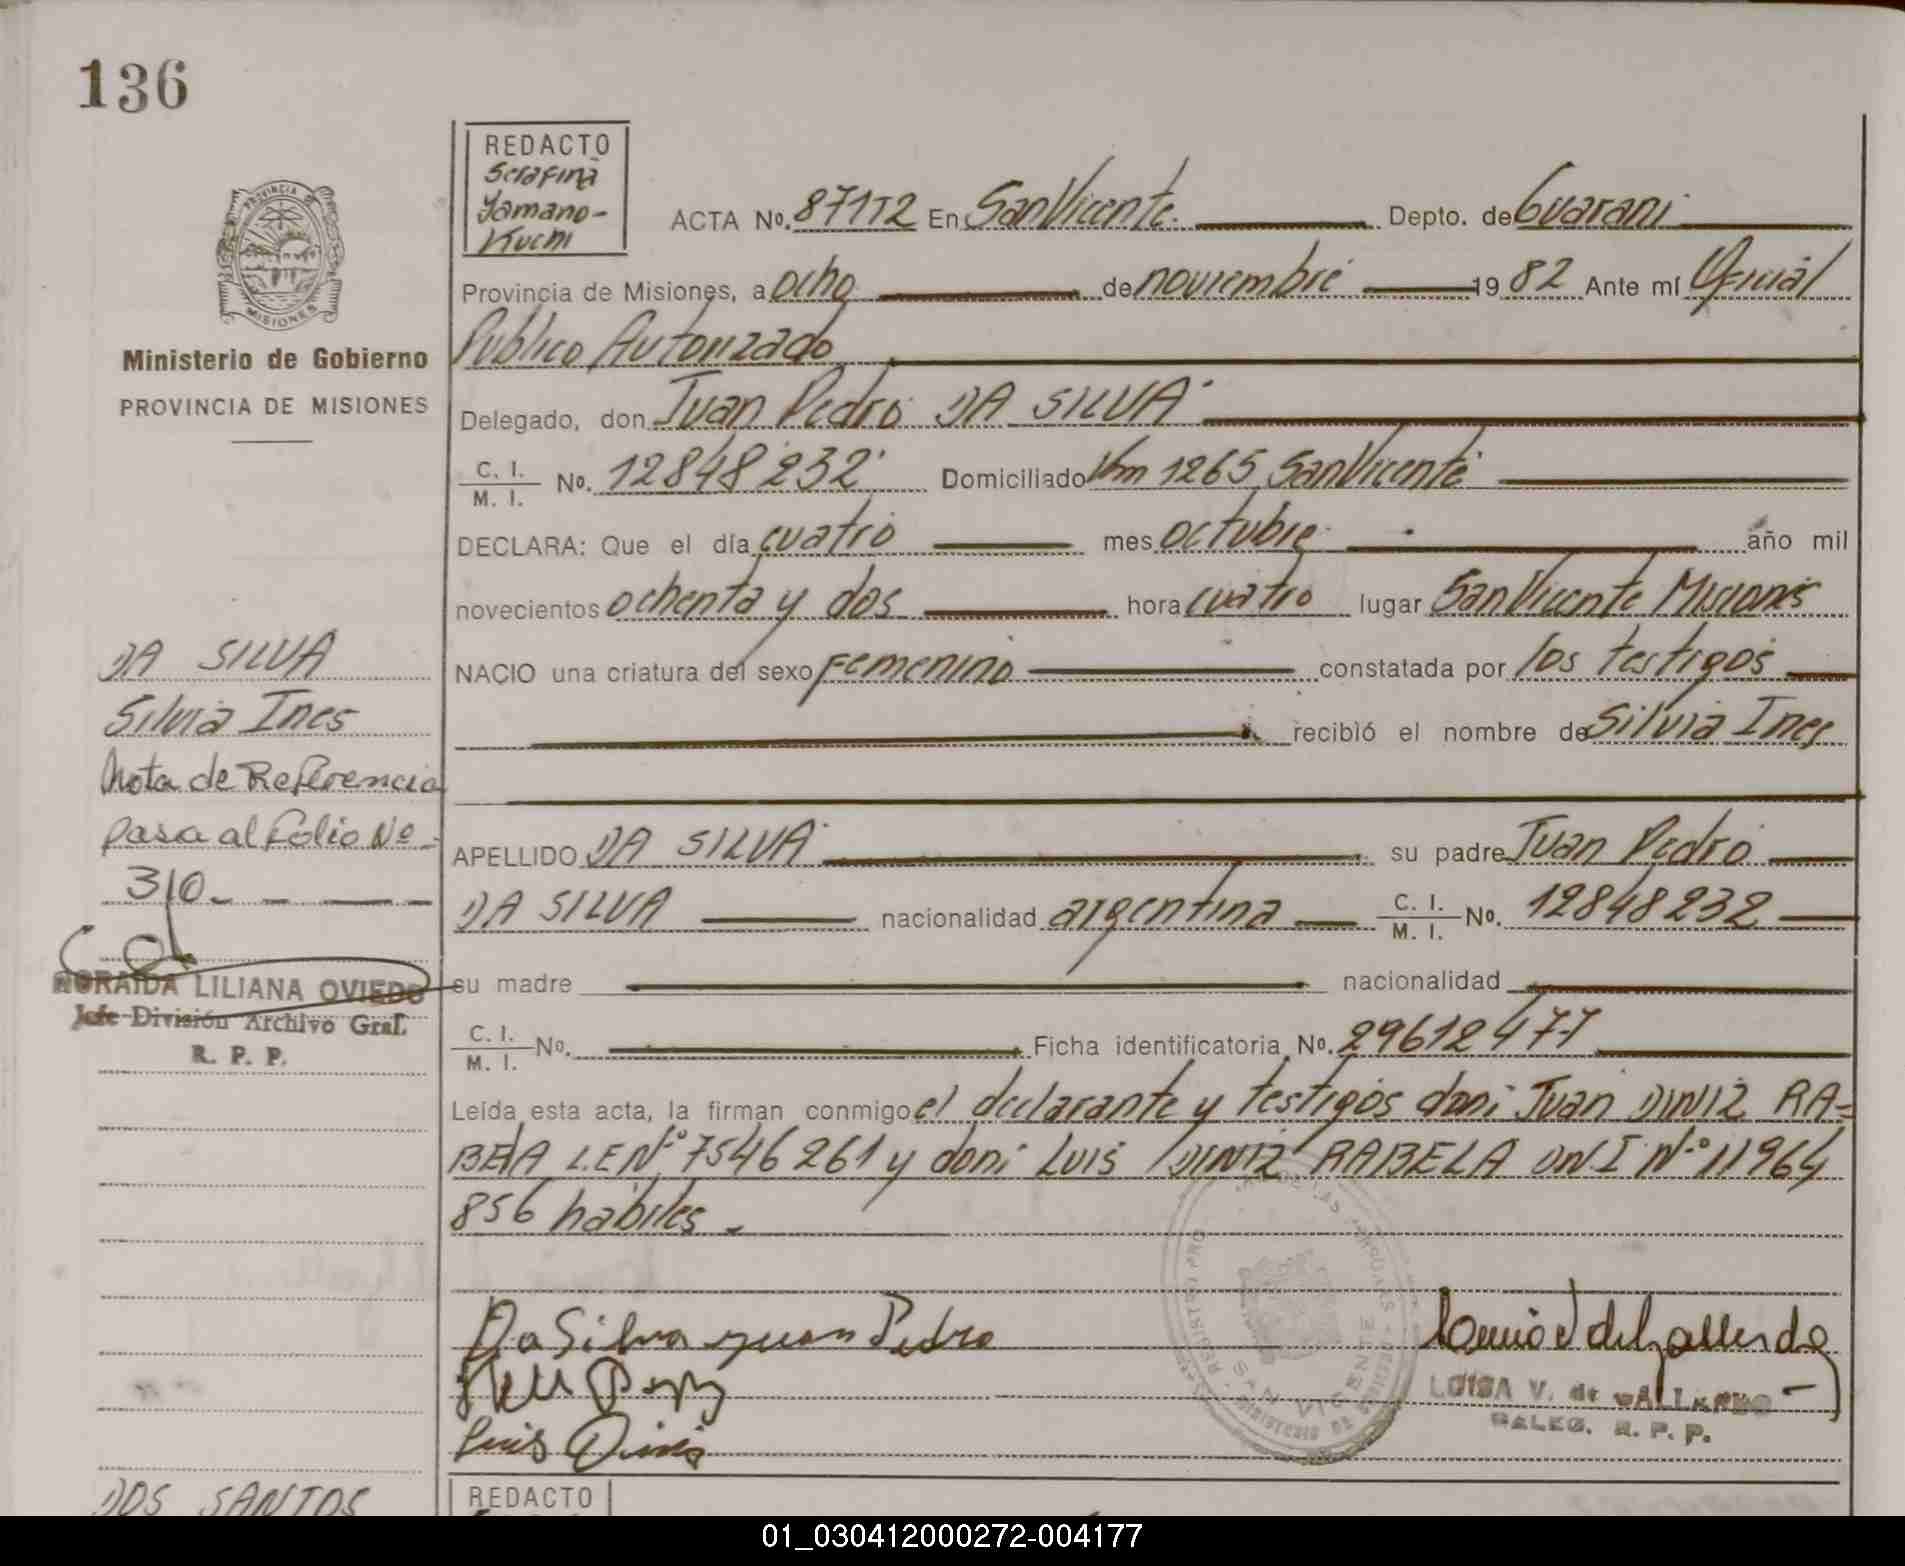 136
REDACTO
Serafina
Yamano-
Kuchi
ACTA No. 871T2 En San Vicente Depto. de Guarani
Provincia de Misiones, a ocho de noviembre 1982 Ante mí Oficial
Publico Autorizado
Delegado, don Juan Pedro DA SILVA
C. I.
M. I. No. 12848232 Domiciliado Km 1265 San Vicente
DECLARA: Que el día cuatro mes octubre año mil
novecientos ochenta y dos hora cuatro lugar San Vicente Misiones
NACIO una criatura del sexo femenino constatada por los testigos
recibió el nombre de Silvia Ines
APELLIDO DA SILVA su padre Juan Pedro
DA SILVA nacionalidad argentina C. I.
M. I. No. 12848232
su madre nacionalidad
C. I.
M. I. No. Ficha identificatoria No. 29612477
Leída esta acta, la firman conmigo el declarante y testigos don: Juan DINIZ RA=
BELA L.E Nº 7546261 y don: Luis DINIZ RABELA DNI Nº 11964
856 habiles.
Da Silva Juan Pedro
Luis Diniz
LUISA V. de GALLARDO
DALEG. R. P. P.
SAN VICENTE
PROVINCIA DE
MISIONES
Ministerio de Gobierno
PROVINCIA DE MISIONES
DA SILVA
Silvia Ines
Nota de Referencia
pasa al folio Nº
310
NORAIDA LILIANA OVIEDO
Jefe División Archivo Gral.
R. P. P.
DOS SANTOS
REDACTO
01_030412000272-004177